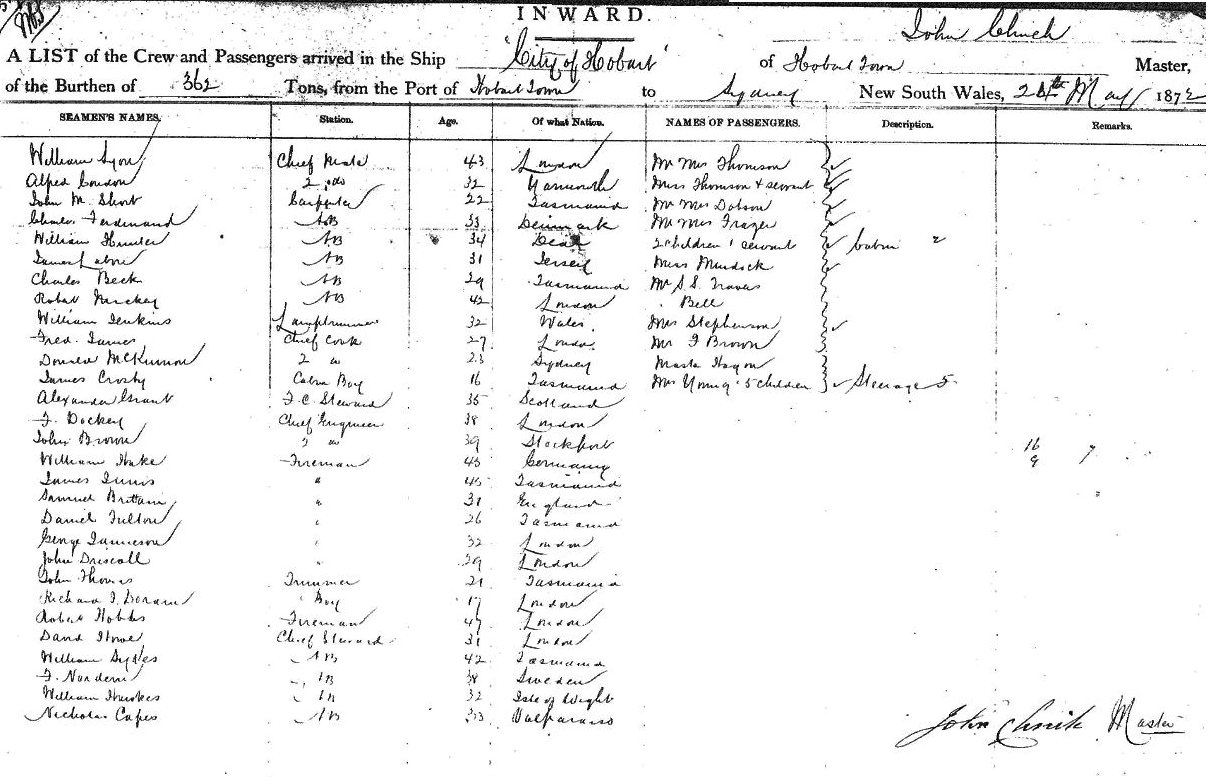 INWARD.
A LIST of the Crew and Passengers arrived in the Ship "City of Hobart" of Hobart Town John Clinch Master,
of the Burthen of 362 Tons, from the Port of Hobart Town to Sydney New South Wales, 24th May 1872
SEAMEN'S NAMES. Station. Age. Of what Nation. NAMES OF PASSENGERS. Description. Remarks.
William Lyon Chief Mate 43 London Mr Mrs Thomson
Alfred Condon 2 do 32 Yarmouth Miss Thomson & servant
John M. Short Carpenter 22 Tasmania Mr Mrs Dobson
Charles Ferdinand AB 33 Denmark Mr Mrs Frazer
William Hunter AB 34 Deal 2 children 1 servant Cabin "
James AB 31 Jersey Miss Murdock
Charles Beck AB 29 Tasmania Mr S.S. Travas
Robert Mackey AB 42 London Bell
William Jenkins Lamptrimmer 32 Wales Mrs Stephenson
Fred. James Chief Cook 27 London Mr J Brown
Donald McKinnon 2 do 23 Sydney Master
James Crosby Cabin Boy 16 Tasmania Mrs Young 5 children Steerage 5
Alexander Grant F.C. Steward 35 Scotland
F. Dockey Chief Engineer 38 London
John Brown 2 do 39 Stockport 16
William Hake Fireman 45 Germany 9 7
James " 45 Tasmania
Samuel Brittain " 31 England
Daniel Fulton " 26 Tasmania
George Jamieson " 32 London
John Driscoll " 29 London
John Thomas Trimmer 21 Tasmania
Richard J. Doran " Boy 17 London
Robert Hobbs Fireman 47 London
David Howe Chief Steward 31 London
William Sykes AB 42 Tasmania
F. Norden AB 38 Sweden
William AB 32 Isle of Wight
Nicholas Capes AB 33 Valparaiso
John Clinch Master